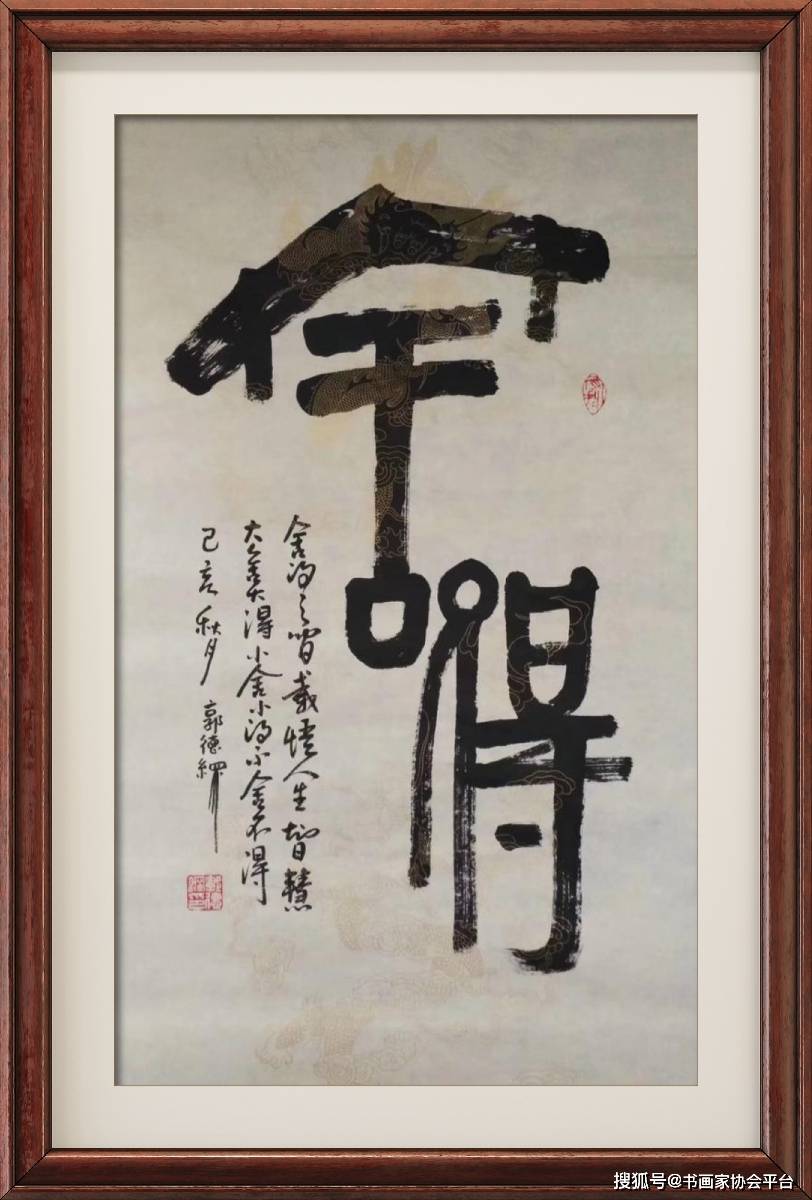 舍得
舍得之间载悟人生智慧
大舍大得小舍小得不舍不得
己亥秋月 郭德
搜狐号@书画家协会平台